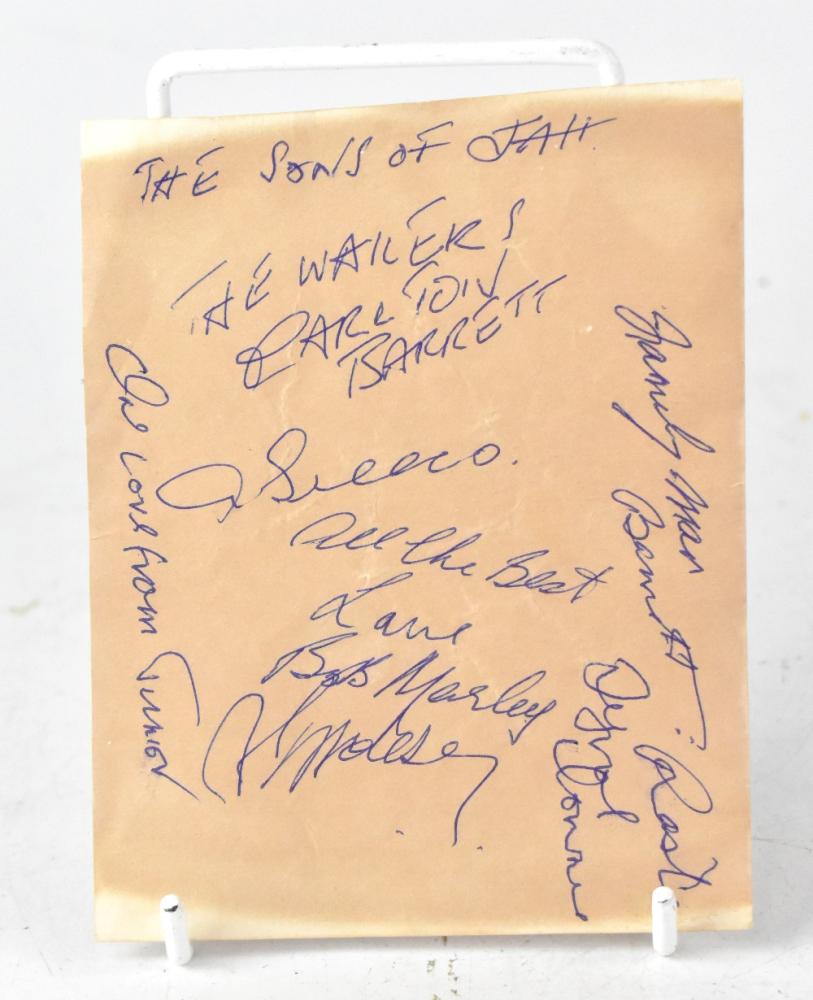 THE SONS OF JAH.
THE WAILERS
CARLTON
BARRETT
One Love from Junior
Seeco.
All the Best
Love
Bob Marley
Family Man
Barrett
Rast